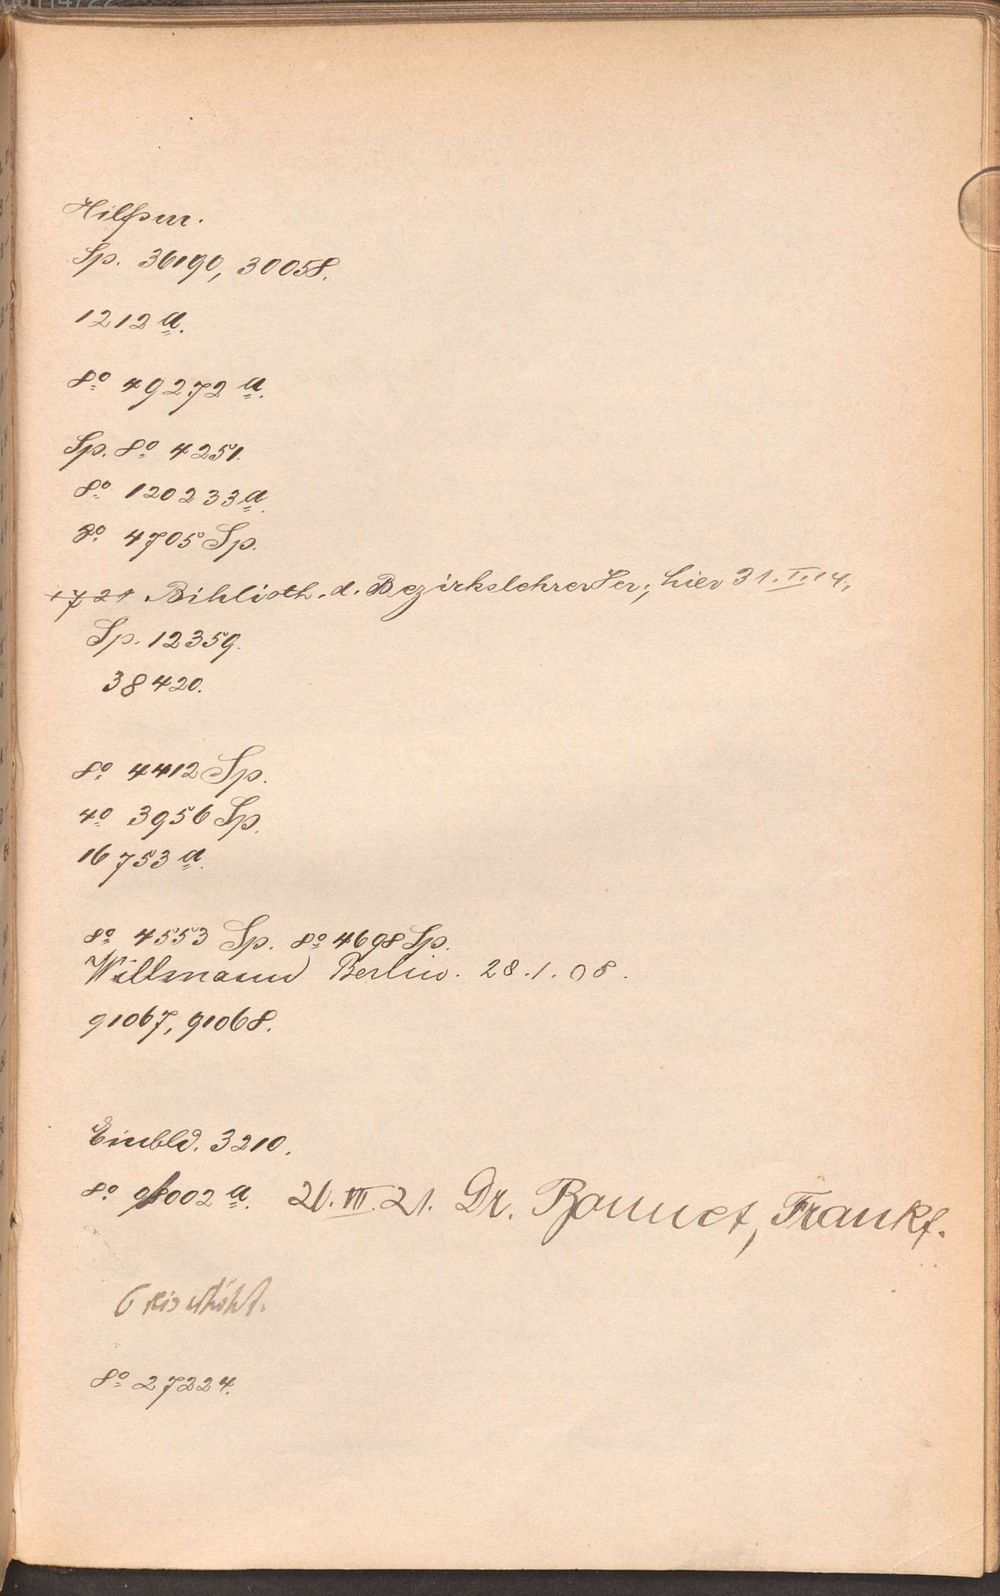 Sp. 36190, 30058.
1212 a.
8° 49272 a.
Sp. 8° 4251.
8° 120233 a.
8° 4705 Sp.
Biblioth. d. Bezirkslehrer Ver., hier 31. I. 14,
Sp. 12359.
38420.
8° 4412 Sp.
4° 3956 Sp.
16753 a.
8° 4553 Sp. 8° 4698 Sp.
Willmann Berlin. 28.1.08.
91067, 91068.
Einbld. 3210.
8° a. VII. 21. Dr. Bonnet, Frankf.
8° 27224.